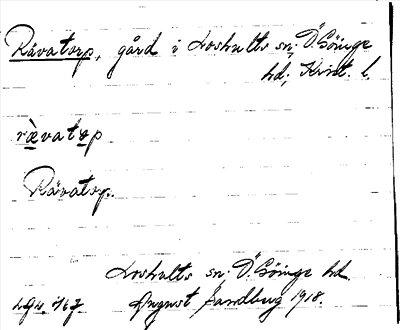 Rävatorp, gård i Loshults sn; Ö. Göinge
hd; Krist. l.
rævatop
Rävatorp.
Loshults sn; Ö. Göinge hd
August Sandberg 1918.